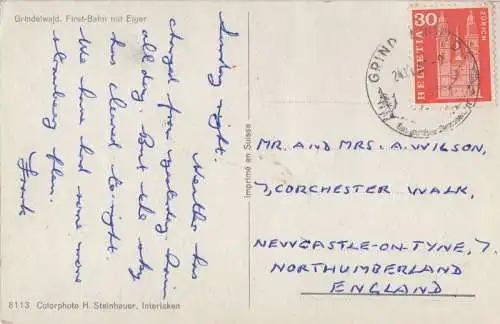 Grindelwald, First-Bahn mit Eiger
Sunday night.
Weather has
changed from yesterday. Rain
all day. But the sky
has cleared to-night.
We have had some more
Frank
8113 Colorphoto H. Steinhauer, Interlaken
Imprimé en Suisse
30
HELVETIA
ZÜRICH
GRIND
MR. AND MRS. A. WILSON,
7, CORCHESTER WALK,
NEWCASTLE-ON-TYNE, 7.
NORTHUMBERLAND
ENGLAND